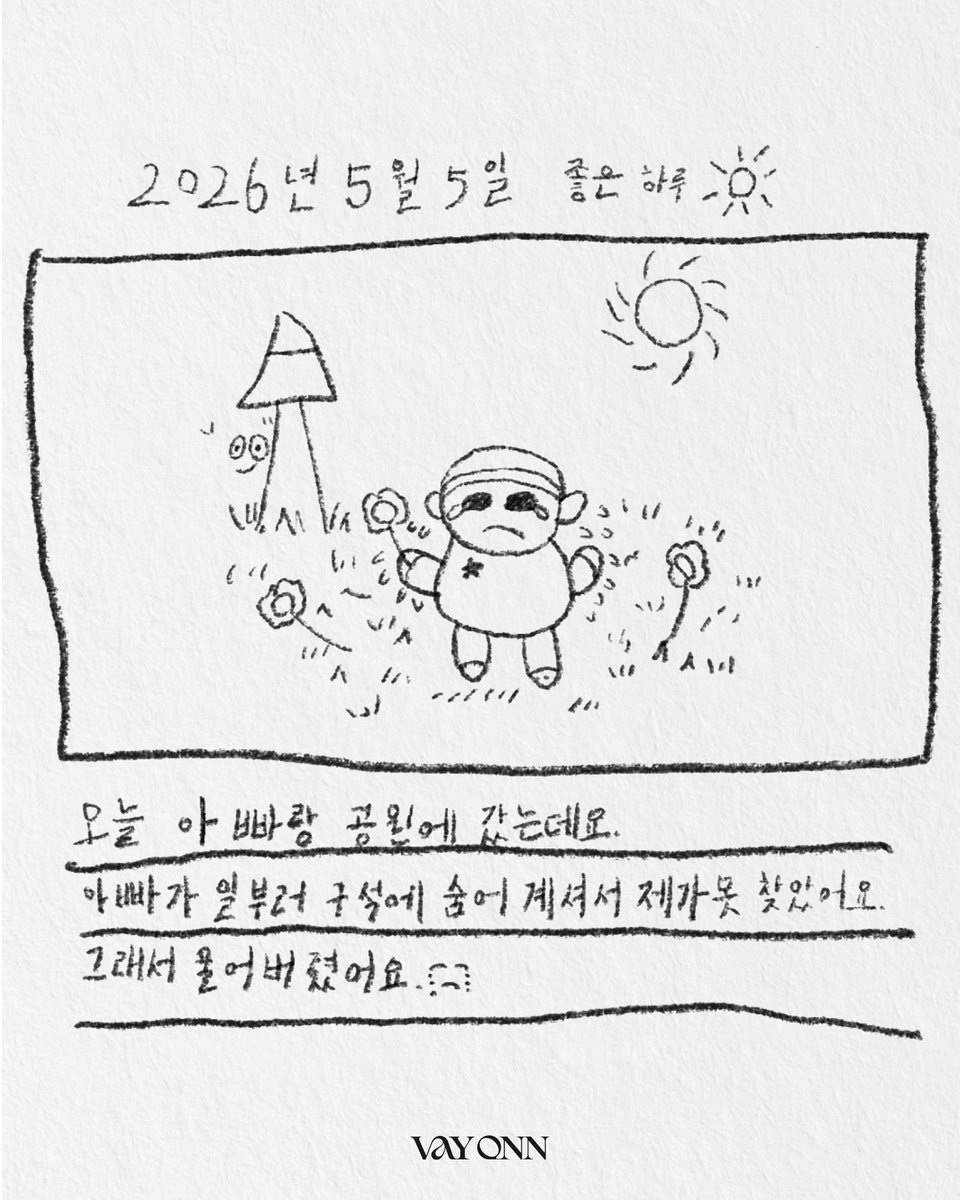 2026년 5월 5일 좋은 하루
오늘 아빠랑 공원에 갔는데요.
아빠가 일부러 구석에 숨어 계셔서 제가 못 찾았어요.
그래서 울어버렸어요.
VAYONN